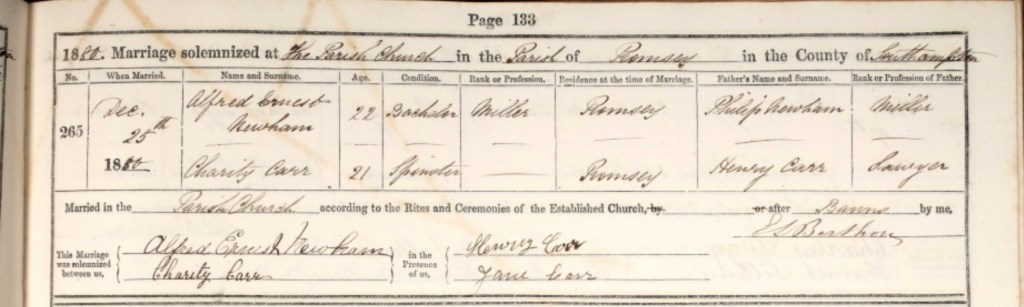 Page 133
1880. Marriage solemnized at The Parish Church in the Parish of Romsey in the County of Southampton
No. When Married. Name and Surname. Age. Condition. Rank or Profession. Residence at the time of Marriage. Father's Name and Surname. Rank or Profession of Father.
265 Dec. 25th 1880 Alfred Ernest Newham 22 Bachelor Miller Romsey Philip Newham Miller
Charity Carr 21 Spinster — Romsey Henry Carr Sawyer
Married in the Parish Church according to the Rites and Ceremonies of the Established Church, by or after Banns by me,
E L Berthon
This Marriage was solemnized between us, Alfred Ernest Newham
Charity Carr
in the Presence of us, Henry Carr
Jane Carr